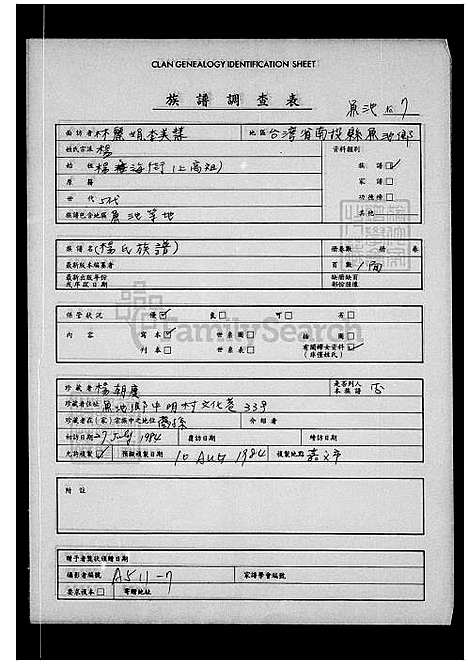 CLAN GENEALOGY IDENTIFICATION SHEET
族譜調查表 魚池 No 7
面訪者 林 李美 地區 台灣省南投縣魚池鄉
姓氏宗派 楊 資料類別
始位 楊 海 (上高祖) 族譜☑
原籍 家譜□
世代 5代 功德榜□
族譜包含地區 魚池等地 其他
族譜名 (楊氏族譜) 冊卷數 冊 卷
最新版本編纂者 頁數 1面
最新出版年份或年出日期 缺簡缺頁
保管狀況 優☑ 良□ 可□ 劣□
內容 寫本☑ 世系圖□ 插圖□
刊本□ 世系表□ 有關譜未資料☑
(非僅姓氏)
FamilySearch
珍藏者 楊朝慶 是否列入本族譜 否
珍藏者住址 魚池鄉中明村文化巷33号
珍藏者在(家)宗族中之地位 裔孫 介紹者
初訪日期 27 July 1984 復訪日期 續訪日期
允許複製☑ 預擬複製日期 10 Aug 1984 複製地點 嘉義市
附註
贈予者獎狀頒贈日期
攝影者編號 A511-7 家譜學會編號
要求複本□ 寄贈地址